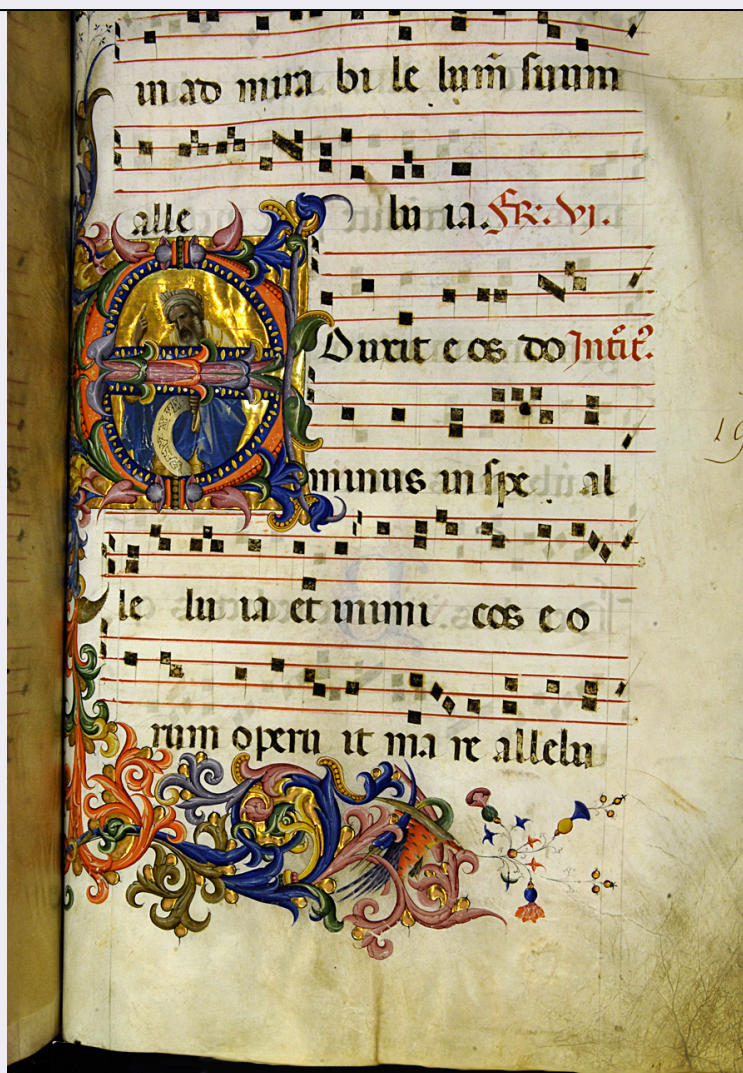 in ad mira bi le lum̄ suum
alle lu ia. Fr. vj.
E Duxit e os do Introit.
minus in spe al
le lu ia et inimi cos e o
rum operu it ma re allelu
19